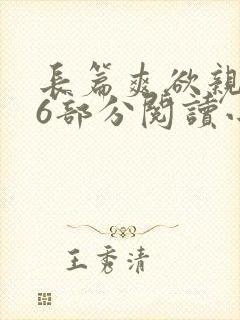 長篇爽欲親
6部分閱讀
王秀清